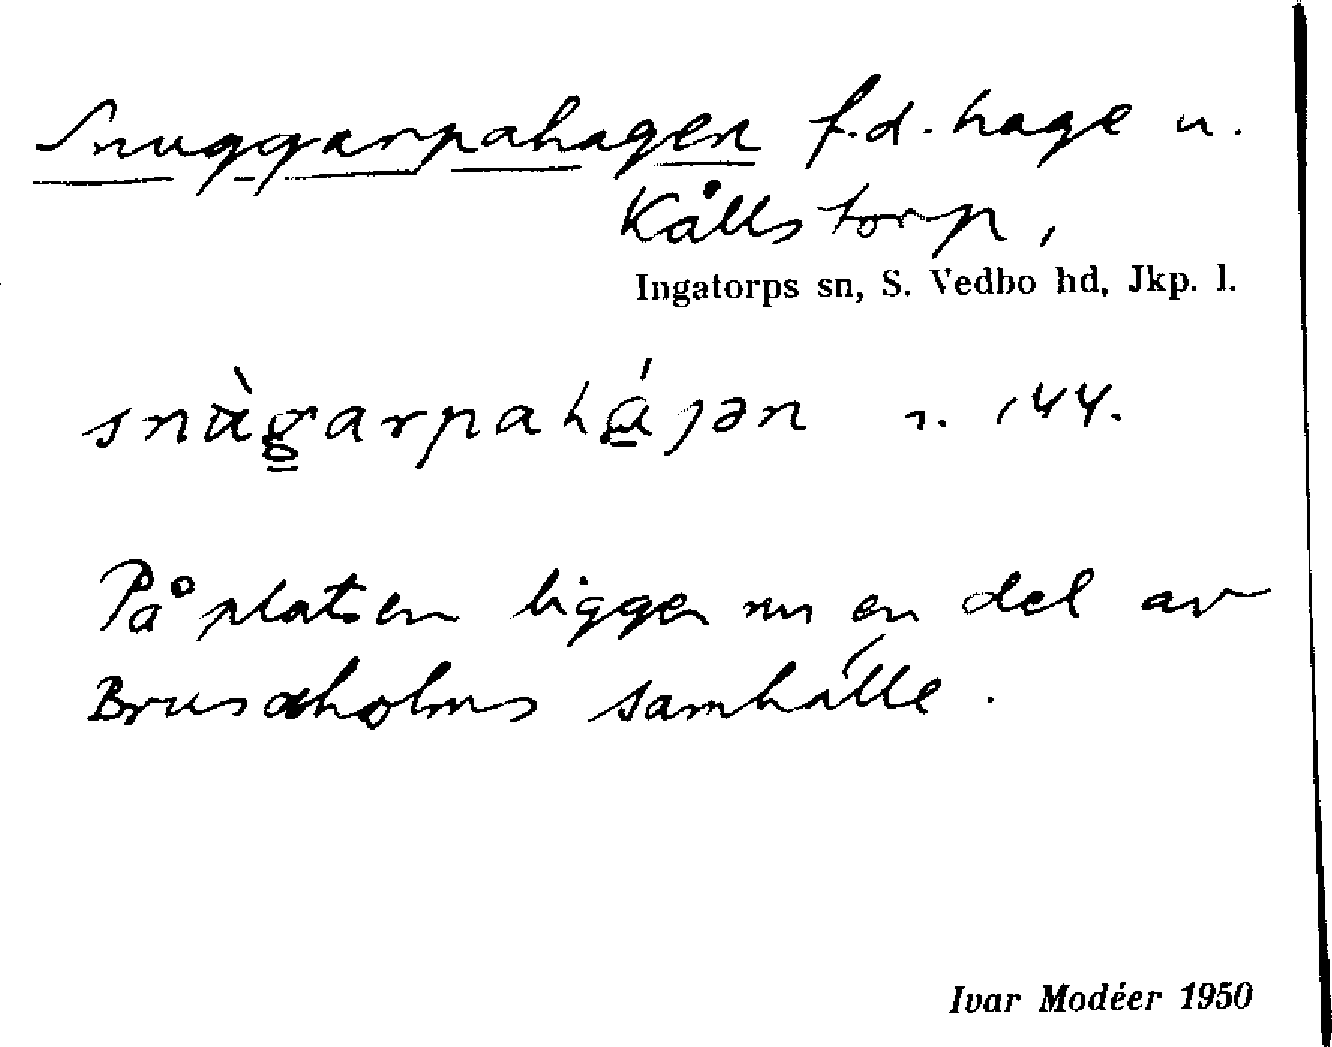 Snuggarpahagen f.d. hage u.
Kållstorp,
Ingatorps sn, S. Vedbo hd, Jkp. l.
snùg̳arpahá̱jən r. 144.
På platsen ligger nu en del av
Brusaholms samhälle.
Ivar Modéer 1950